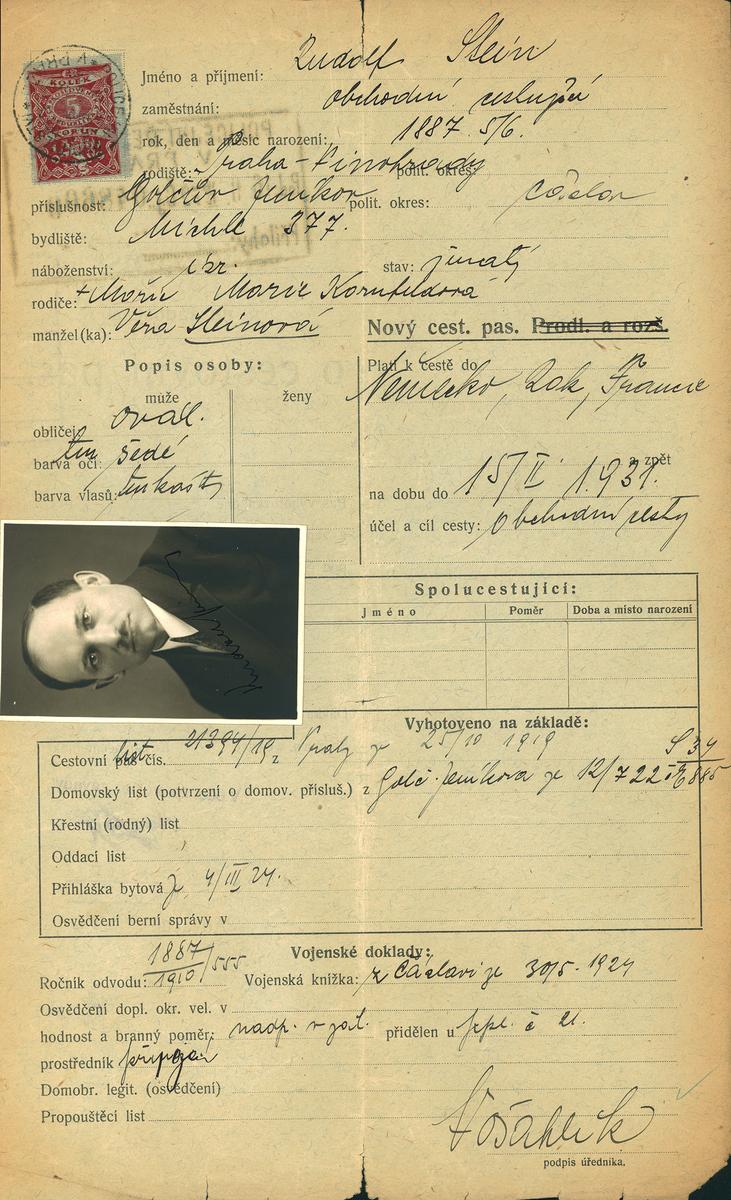 KOLEK
5
KORUN
Jméno a příjmení: Rudolf Stein
zaměstnání: obchodní cestující
rok, den a měsíc narození: 1887 5/6.
rodiště: Praha-Vinohrady polit. okres:
příslušnost: Golčův Jeníkov polit. okres: Čáslav
bydliště: Michle 377.
náboženství: izr. stav: ženatý
rodiče: + Marie Kornfeldová
manžel(ka): Věra Steinová
Nový cest. pas. Prodl. a rozš.
Popis osoby:
muže ženy
obličej ovál.
barva očí: šedé
barva vlasů:
Platí k cestě do Německo, Rak, Francie
a zpět
na dobu do 15/II 1931.
účel a cíl cesty: obchodní cesty
Spolucestující:
Jméno Poměr Doba a místo narození
Vyhotoveno na základě:
Cestovní list čís. 21394/19 z Prahy ze 25/10 1919
Domovský list (potvrzení o domov. přísluš.) z Golč. Jeníkova ze 12/7 22
S 34
885
Křestní (rodný) list
Oddací list
Přihláška bytová ze 4/III 24.
Osvědčení berní správy v
Vojenské doklady:
Ročník odvodu: 1887/1910/555 Vojenská knížka: z Čáslavi ze 30/5 - 1924
Osvědčení dopl. okr. vel. v
hodnost a branný poměr: v zál. přidělen u č 21.
prostředník
Domobr. legit. (osvědčení)
Propouštěcí list
podpis úředníka.